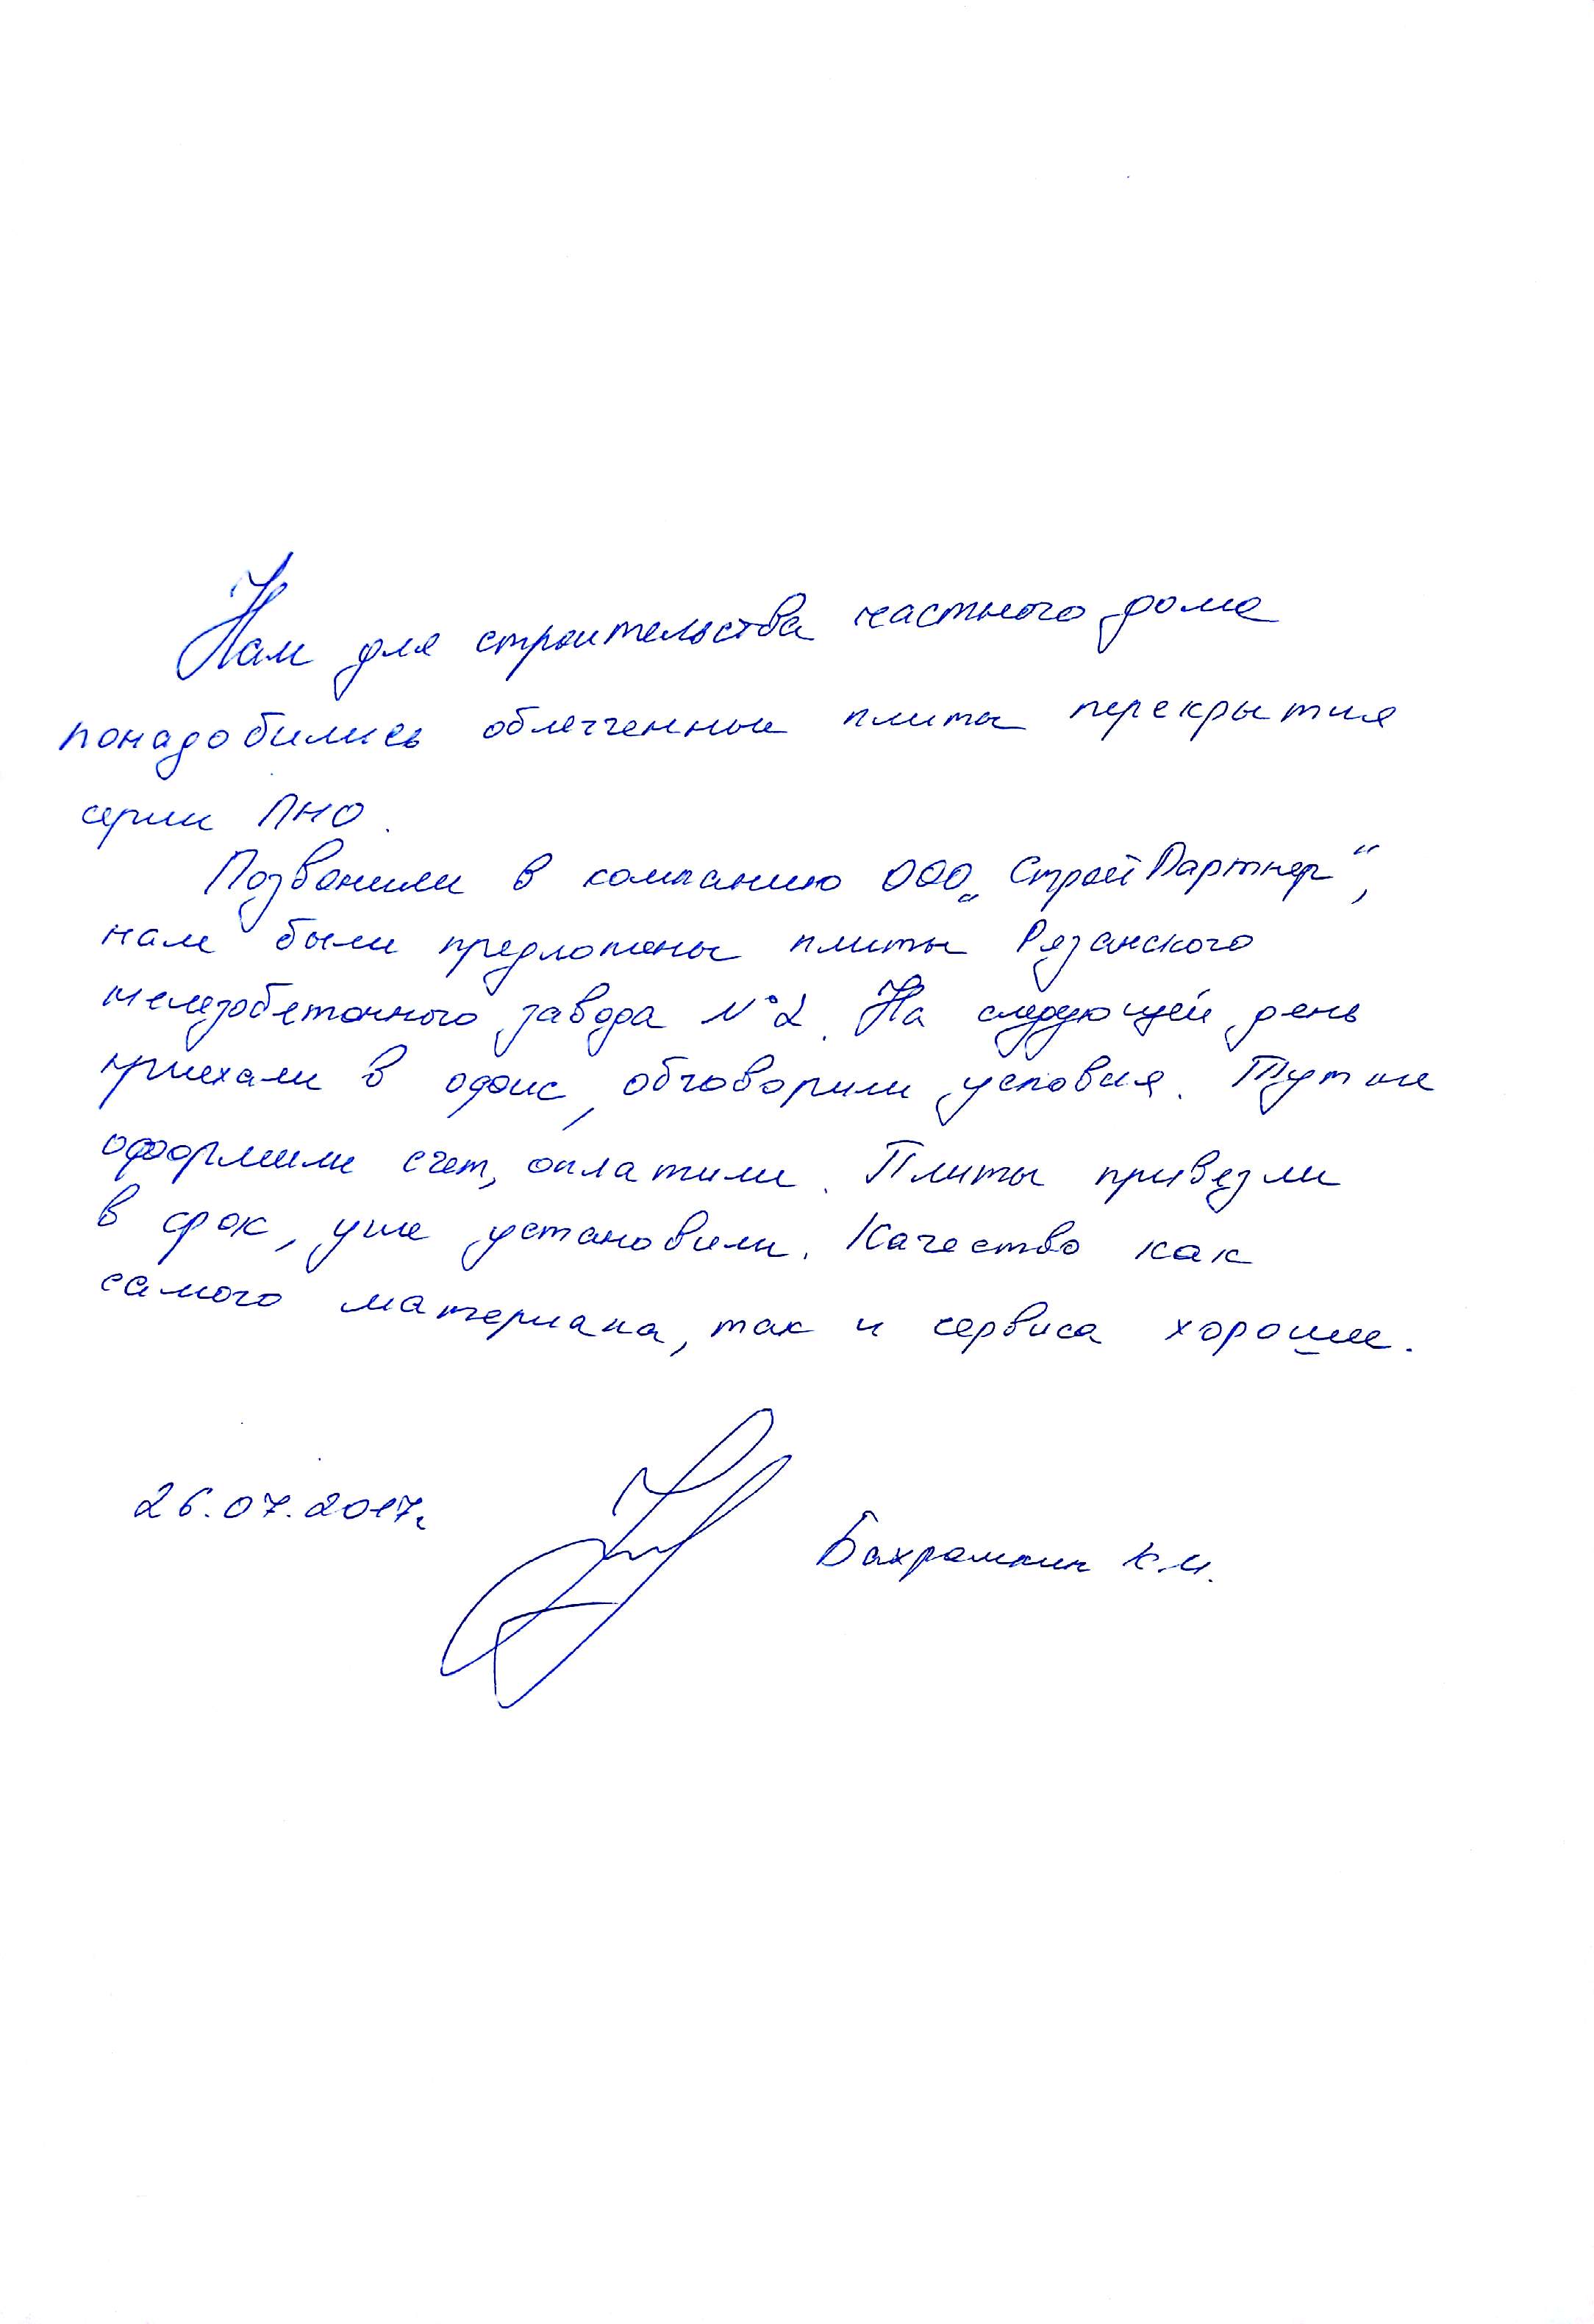 Нам для строительства частного дома
понадобились облегченные плиты перекрытия
серии ПНО.
Позвонили в компанию ООО „СтройПартнер“,
нам были предложены плиты Рязанского
железобетонного завода №2. На следующей день
приехали в офис, обговорили условия. Тут же
оформили счет, оплатили. Плиты привезли
в срок, уже установили. Качество как
самого материала, так и сервиса хорошее.
26.07.2017г.
Бахрамкин К.И.